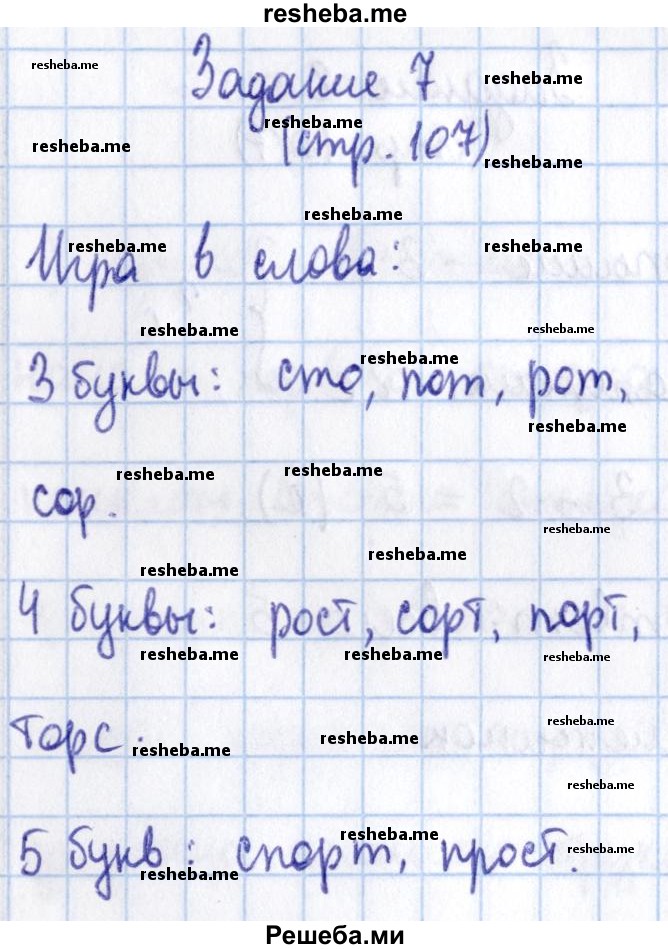 resheba.me
resheba.me
Задание 7
resheba.me
resheba.me
resheba.me
(стр. 107)
resheba.me
resheba.me
Игра в слова:
resheba.me
resheba.me
resheba.me
resheba.me
resheba.me
3 буквы: сто, пот, рот,
resheba.me
resheba.me
resheba.me
сор.
resheba.me
resheba.me
resheba.me
4 буквы: рост, сорт, порт,
resheba.me
resheba.me
resheba.me
resheba.me
торс.
resheba.me
resheba.me
resheba.me
resheba.me
5 букв: спорт, прост.
resheba.me
resheba.me
Решеба.ми